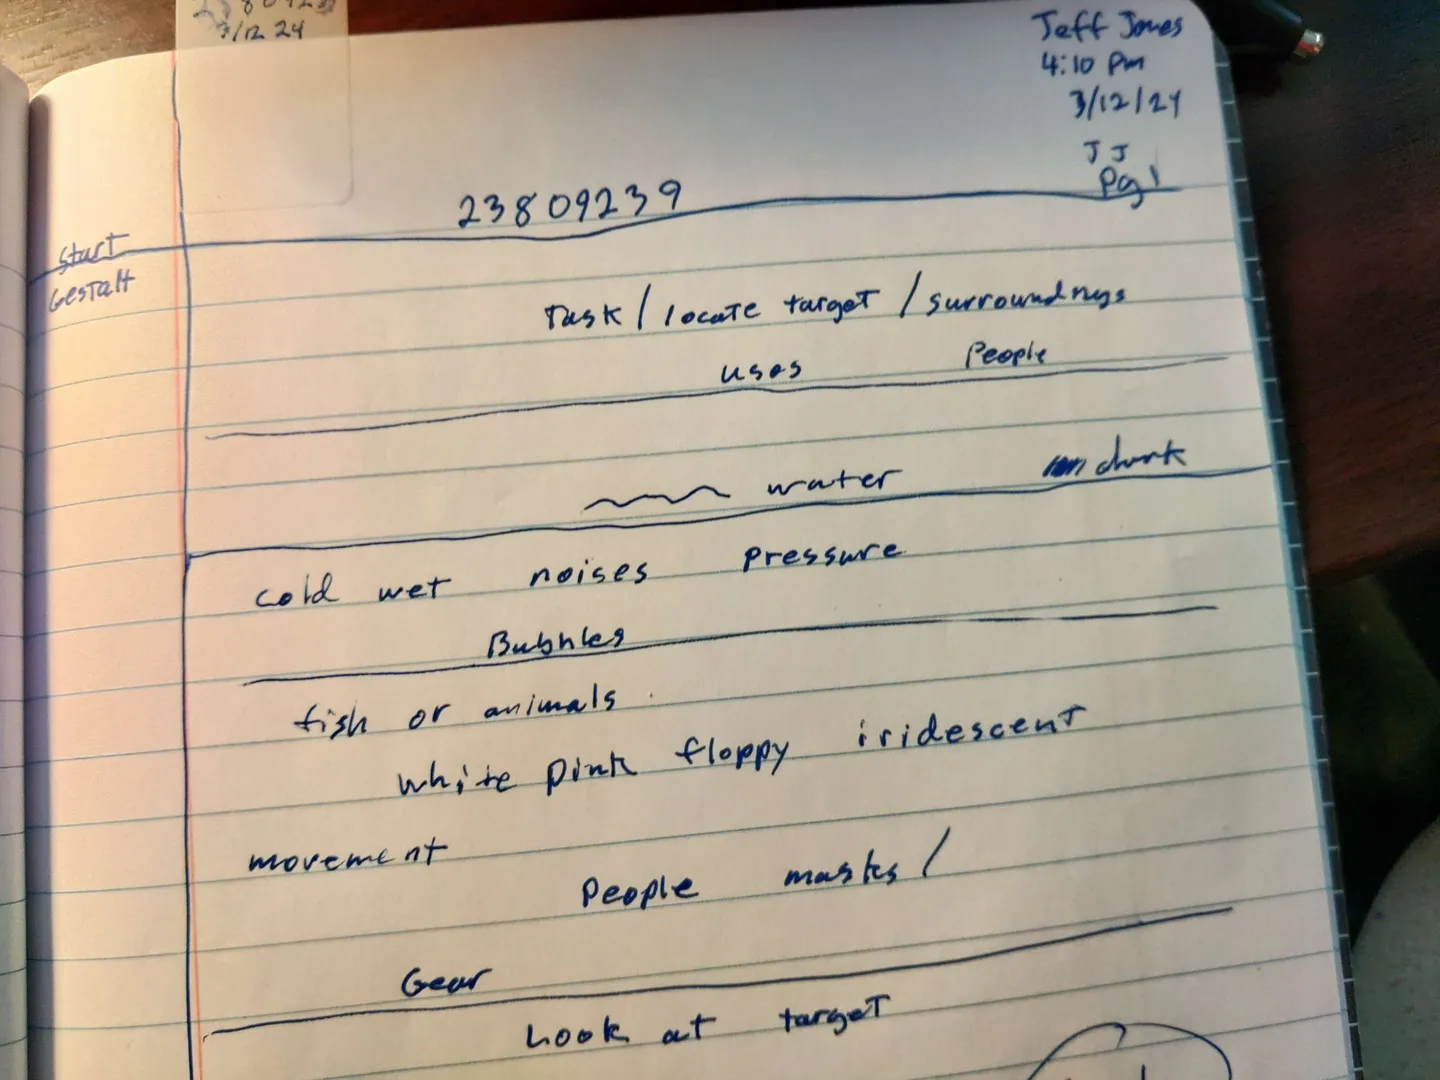 3/12 24
Jeff Jones
4:10 Pm
3/12/24
JJ
Pg 1
23809239
Start
Gestalt
Task / locate target / surroundings
uses People
water dark
cold wet noises pressure
Bubbles
fish or animals
white pink floppy iridescent
movement
People masks /
Gear
Look at target